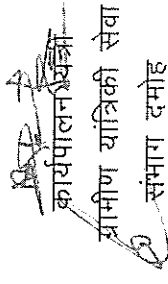 कार्यपालन यंत्री
ग्रामीण यांत्रिकी सेवा
संभाग दमोह